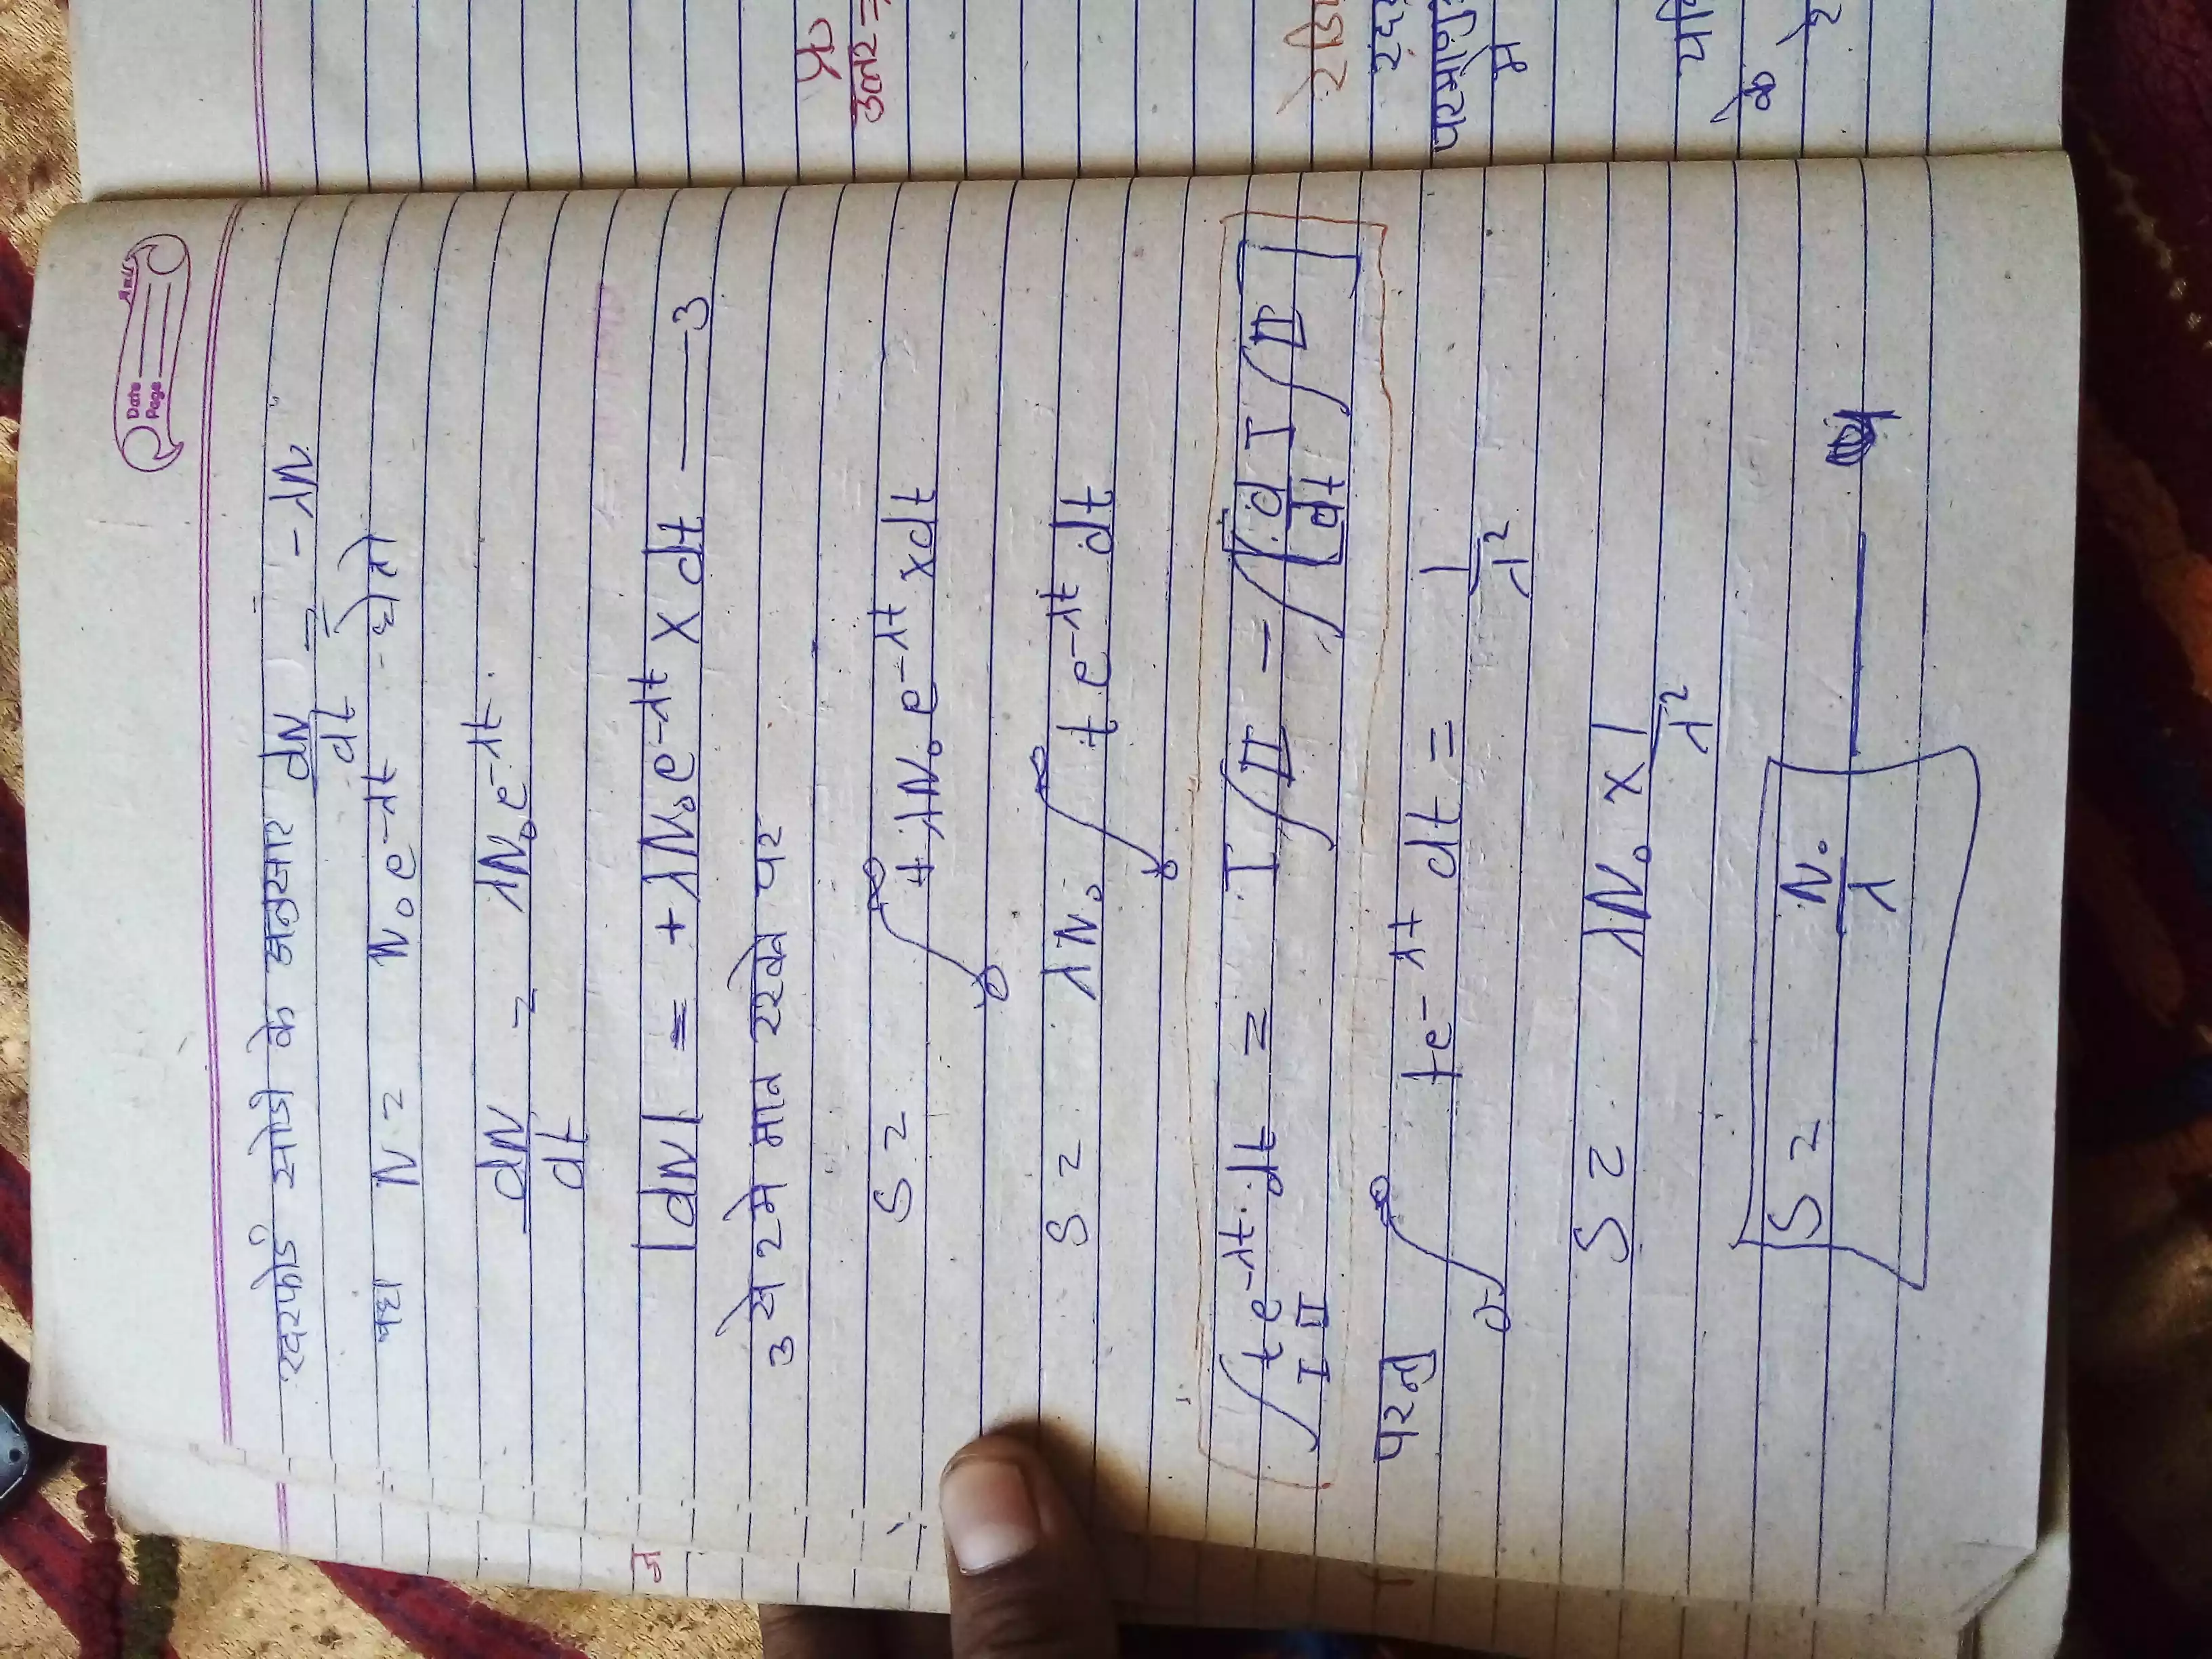 Date
Page
रदरफोर्ड सोडी के अनुसार dN/dt = -λN
यहा N = N₀e^-λt से तो
dN/dt = λN₀e^-λt.
|dN| = +λN₀e^-λt × dt —— 3
3 से 2 मे मान रखने पर
S = ∫₀^∞ t λN₀e^-λt × dt
S = λN₀ ∫₀^∞ t e^-λt dt
∫ t e^-λt . dt = I ∫ II - ∫ [ d I / dt ∫ II ]
I II
परन्तु ∫₀^∞ t e^-λt dt = 1/λ²
S = λN₀ × 1/λ²
S = N₀/λ —— 4
प्र०
उत्तर =